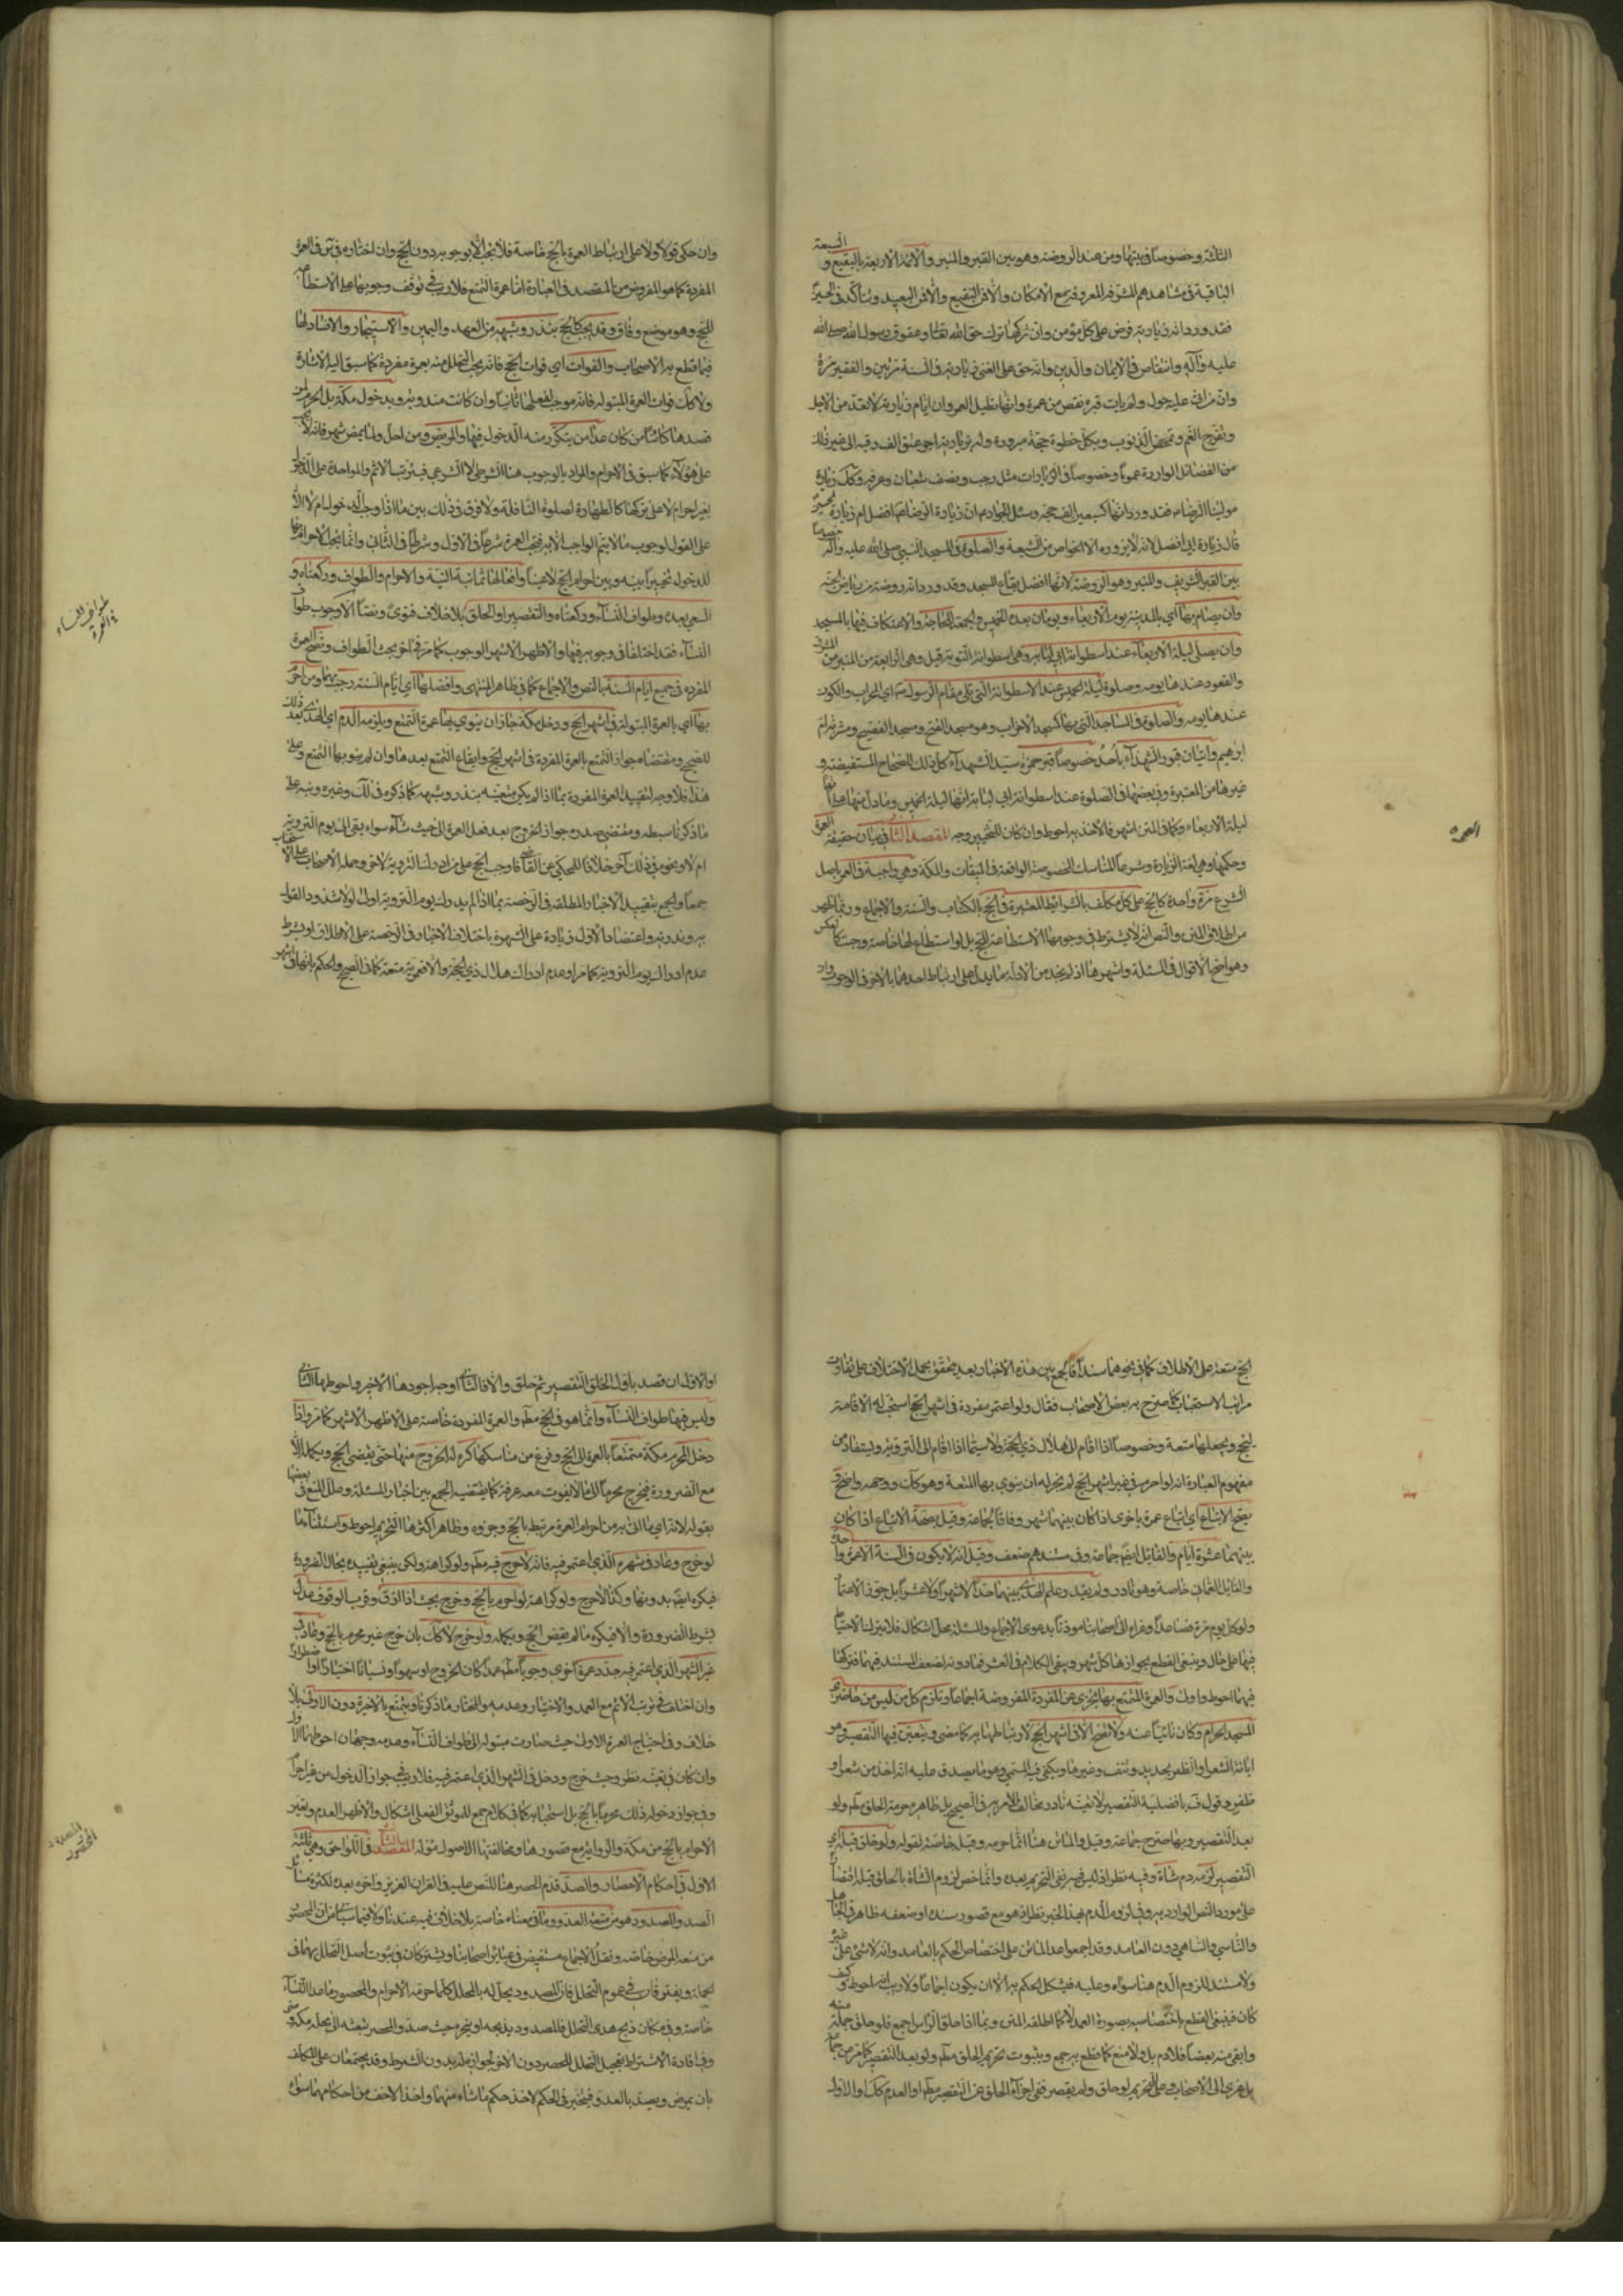 الثلثة وخصوصا في بيتها ومن عند الروضة وهو بين القبر والمنبر والأئمة الأربعة بالبقيع و
السبعة
الباقية في مشاهدهم المشرفة المعروفة مع الإمكان والا فمن البقيع والا فمن البعيد ويتأكد في الحسين
فقد ورد ان زيارته فرض على كل مؤمن وان تركها ترك حق الله تعالى وعقوق رسول الله صلى الله
عليه وآله وانتقاص في الإيمان والدين وانه حق على الغنى زيارته في السنة مرتين والفقير مرة
وان من اتى عليه حول ولم يات قبره نقص من عمره وانها تطيل العمر وان ايام زيارته لا تعد من الاجل
وتفرج الغم وتمحص الذنوب وبكل خطوة حجة مبرورة وله بزيارته اجر عتق الف رقبة الى غير ذلك
من الفضائل الواردة عموما وخصوصا في الزيارات مثل رجب ونصف شعبان وعرفة وكك زيارة
مولينا الرضا فقد ورد انها كسبعين الف حجة وسئل الجواد ان زيارة الرضا افضل ام زيارة
الحسين
قال زيارة ابي افضل لانه لا يزوره الا الخواص من الشيعة والصلوة في المسجد النبي صلى الله عليه وآله
خصوصا
بين القبر الشريف والمنبر وهو الروضة لانها افضل بقاع المسجد وقد ورد انه روضة من رياض الجنة
وان يصام بها اي بالمدينة يوم الاربعاء ويومان بعده الخميس والجمعة للحاجة والاعتكاف فيها بالمسجد
وان يصلى ليلة الاربعاء عند اسطوانة ابي لبابة وهي اسطوانة التوبة قيل وهي الرابعة من المنبر من
المشرق
والقعود عندها يومه وصلوة ليلة الخميس عند الاسطوانة التي تلي مقام الرسول اي المحراب والكون
عندها يومه والصلوة في المساجد التي بها كمسجد الاحزاب وهو مسجد الفتح ومسجد الفضيخ ومشربة ام
ابرهيم واتيان قبور الشهداء بأحد خصوصا قبر حمزة سيد الشهداء كل ذلك للصحاح المستفيضة و
غيرها من المعتبرة وفي بعضها في الصلوة عند اسطوانة ابي لبابة انها ليلة الخميس وما دل منها على انها
ليلة الاربعاء وكما في المتن اشهر فالاخذ به احوط وان كان للتخيير وجه المقصد الثاني في بيان حقيقة
العمرة
وحكمها وهي لغة الزيارة وشرعا المناسك المخصوصة الواقعة في الميقات والمكة وهي واجبة في العمر باصل
الشرع مرة واحدة كالحج على كل مكلف بالشرائط المعتبرة في الحج بالكتاب والسنة والاجماع وربما ظهر
من اطلاق المتن والنص انه لا يشترط في وجوبها الاستطاعة للحج بل لو استطاع لها خاصة وجبت كالعكس
وهو اصح الاقوال في المسئلة واشهرها اذ لم نجد من الادلة ما يدل على ارتباط احدهما بالاخر في الوجوب
العمرة
وان حكى قولا ولا على ارتباط العمرة بالحج خاصة فلا تجب الا بوجوبه دون الحج وان اختاره في س في العمرة
المفردة كما هو المفروض من المقصد في العبارة اما عمرة التمتع فلا ريب في توقف وجوبها على الاستطاعة
للحج وهو موضع وفاق وقد تجب كالحج بنذر وشبهه من العهد واليمين والاستيجار والافساد لها
فيما قطع به الاصحاب والفوات اي فوات الحج فانه يجب التحلل منه بعمرة مفردة كما سبق اليه الاشارة
ولا كك فوات العمرة المبتولة فانه موجب لفعلها ثانيا وان كانت مندوبة وبدخول مكة بل الحرم لمن
قصدها كائنا من كان عدا من يتكرر منه الدخول فيها والمريض ومن احل ولما يمض شهر فانه لا
على هؤلاء كما سبق في الاحرام والمراد بالوجوب هنا الشرطي لا الشرعي فيترتب الاثم والمؤاخذة على الدخول
بغير احرام لا على تركها كالطهارة لصلوة النافلة ولا فرق في ذلك بين ما اذا وجب الدخول ام لا الا
على القول بوجوب ما لا يتم الواجب الا به فتجب العمرة شرعا في الاول وشرطا في الثاني وانما يجب الاحرام بها
للدخول تخييرا بينه وبين احرام الحج لا عينا وافعالها ثمانية النية والاحرام والطواف وركعتاه و
السعي بعده وطواف النساء وركعتاه والتقصير او الحلق بلا خلاف فتوى ونصا الا وجوب طواف
النساء فقد اختلفا في وجوبه فيها والاظهر الاشهر الوجوب كما مر في اخر بحث الطواف وتصح العمرة
المفردة في جميع ايام السنة بالنص والاجماع كما في ظاهر المنتهى وافضلها اي ايام السنة رجب ومن احرم
بها اي بالعمرة المبتولة في اشهر الحج ودخل مكة جاز ان ينوي بها عمرة التمتع ويلزمه الدم اي الهدي بعد ذلك
للصحيح ومقتضاه جواز التمتع بالعمرة المفردة في اشهر الحج وايقاع التمتع بعدها وان لم ينو بها التمتع وعلى
هذا فلا وجه لتقييد العمرة المفردة بما اذا لم يكن متعينة بنذر وشبهه كما ذكره في لك وغيره ونبه على
ما ذكرنا سبطه ومقتضى صدره جواز الخروج بعد فعل العمرة الى حيث شاء سواء بقي الى يوم التروية
ام لا وبنحوه في ذلك آخر خلافا للمحكي عن القاضي فاوجب الحج على من ادرك التروية لآخر وحمله الاصحاب على الاستحباب
جمعا والجمع بتقييد الاخبار المطلقة في الرخصة بما اذا لم يدرك يوم التروية اولى لولا شذوذ القول
به وندرته واعتضاد الاول زيادة على الشهرة باختلاف الاخبار في الرخصة على الاطلاق او بشرط
عدم ادراك يوم التروية كما مر او عدم ادراك هلال ذي الحجة والا فعمرته متعة كما في الصحيح والحكم بانها في اشهر
طواف النساء
في العمرة
الحج متعة على الاطلاق كما في نحوهما سندا فالجمع بين هذه الاخبار بعد تحقق بحمل الاختلاف على تفاوت
مراتب الاستحباب كما صرح به بعض الاصحاب فقال ولو اعتمر بمفردة في اشهر الحج استحب له الاقامة
ليحج ويجعلها متعة وخصوصا اذا اقام الى هلال ذي الحجة ولا سيما اذا اقام الى التروية ويستفاد من
مفهوم العبارة انه لو احرم في غير اشهر الحج لم يجز له ان ينوي بها المتعة وهو كك ووجهه واضح و
يصح الاتباع اي اتباع عمرة باخرى اذا كان بينهما شهر وفاقا لجماعة وقيل بصحة الاتباع اذا كان
بينهما عشرة ايام والقائل ايضا جماعة وفي مستندهم ضعف وقيل انه لا يكون في السنة الا عمرة واحدة
والقائل العماني خاصة وهو نادر ولم يقدر وعلم الهدى بينهما حدا لا شهرا ولا عشرا بل جوز الاعتمار
ولو كل يوم مرة فصاعدا وعزاه الى اصحابنا موذنا بدعوى الاجماع والمسئلة محل اشكال فلا يترك الاحتياط
فيها على حال وينبغي القطع بجوازها كل شهر ويبقى الكلام في العشر فما دونه لضعف المستند فيهما فتركها
فيهما احوط واولى والعمرة المتمتع بها تجزي عن المفردة المفروضة اجماعا وتلزم كل من ليس من حاضري
المسجد الحرام وكان نائيا عنه ولا تصح الا في اشهر الحج لارتباطها به كما مضى ويتعين فيها التقصير وهو
ابانة الشعر او الظفر بحديد ونتف وغيرهما ويكفي فيه المسمى وهو ما يصدق عليه انه اخذ من شعر او
ظفر وقول ف بافضلية التقصير لا تعينه نادر مخالف الامر به في الصحيح بل ظاهره حرمة الحلق مطلقا ولو
بعد التقصير وبها صرح جماعة وقيل والماتن هنا انما حرمه وقيل خاصة لقوله ولو حلق قبله اي
التقصير لزمه دم شاة وفيه نظر اذ ليس فيه نفي التحريم بعده وانما خص لزوم الشاة بالحلق قبله اقتصارا
على مورد النص الوارد به وفي لزوم الدم بهذا الخبر نظر اذ هو مع قصور سنده او ضعفه ظاهر في الجاهل
والناسي والساهي دون العامد وقد اجمعوا عدا الماتن على اختصاص الحكم بالعامد وانه لا شئ على غيره
ولا مستند للزوم الدم هنا سواه وعليه فيشكل الحكم به الا ان يكون اجماعا ولا ريب انه احوط وكيف
كان فينبغي القطع باختصاصه بصورة العمد لا كما اطلقه المتن وبما اذا حلق الرأس اجمع فلو حلق جملة منه
وابقى منه بعضا فلا دم بل ولا منع كما قطع به جمع وبثبوت تحريم الحلق مطلقا ولو بعد التقصير كما مر من جماعة
بل عزى الى الاصحاب وعلى التحريم لو حلق ولم يقصر ففي اجزاء الحلق عن التقصير مطلقا او العدم كك او الاول
او الاول ان قصد باول الحلق التقصير ثم حلق والا فالثاني اوجه اجودها الاخير واحوطها الثاني
وليس فيها طواف النساء وانما هو في الحج مطلقا والعمرة المفردة خاصة على الاظهر الاشهر كما مر واذا
دخل المحرم مكة متمتعا بالعمرة الى الحج وفرغ من مناسكها كره له الخروج منها حتى يقضي الحج ويكمله الا
مع الضرورة فيخرج محرما الى ما لا يفوت معه عرفة كما يقتضيه الجمع بين اخبار المسئلة وعلل المنع في بعضها
بقوله لانه اي ما اتى به من احرام العمرة مرتبط بالحج وجزوه وظاهر اكثرها التحريم احوط واستثناء ما
لو خرج وعاد في شهره الذي اعتمر فيه فانه لا حرج فيه مطلقا ولو كراهة ولكن ينبغي تقييده بحال الضرورة
فيكره ايضا بدونها وكذا لا حرج ولو كراهة لو احرم بالحج وخرج بحيث اذا ازف وقرب الوقوف عدل
بشرط الضرورة والا فيكره ما لم يقض الحج ويكمله ولو خرج لا كك بان خرج غير محرم بالحج وعاد في
غير الشهر الذي اعتمر فيه جدد عمرة اخرى وجوبا مطلقا عمدا كان الخروج او سهوا او نسيانا اختيارا او اضطرارا
وان اختلف في ترتب الاثم مع العمد والاختيار وعدمه والمختار ما ذكرنا ويتمتع بالاخيرة دون الاولى بلا
خلاف وفي احتياج العمرة الاولى حيث صارت مبتولة الى طواف النساء وعدمه وجهان احوطهما الاول
وان كان في تعينه نظر وحيث خرج ودخل في الشهر الذي اعتمر فيه فلا ريب في جواز الدخول من غير احرام
وفي جواز دخوله ذلك محرما بالحج بل استحبابه كما في كلام جمع للموثق الفعلي اشكال والاظهر العدم وتعين
الاحرام بالحج من مكة والرواية مع قصورها ومخالفتها الاصول مؤلة المقصد الثالث في اللواحق وهي ثلثة
الاول في احكام الاحصار والصد قدم الحصر هنا للنص عليه في القران العزيز واخره بعد لكثرة مسائل
الصد والمصدود هو من منعه العدو وما في معناه خاصة بلا خلاف فيه عندنا ولا فيما سياتي من ان المحصور
من منعه المرض خاصة ونقل الاجماع مستفيض في عبائر اصحابنا ويشتركان في ثبوت اصل التحلل بهما في
الجملة ويفترقان في عموم التحلل فان المصدود يحل له بالمحلل كلما حرمه الاحرام والمحصور ما عدا النساء
خاصة وفي مكان ذبح هدى التحلل فالمصدود يذبحه او ينحره حيث صد والمحصر يبعثه الى محله مكة ومنى
وفي افادة الاشتراط تعجيل التحلل للمحصر دون الاخر لجوازه له بدون الشرط وقد يجتمعان على المكلف
بان يمرض ويصده العدو فيتخير في الحكم لاخذ حكم ما شاء منهما واخذ الاخف من احكامهما سواء
المصدود
المحصور